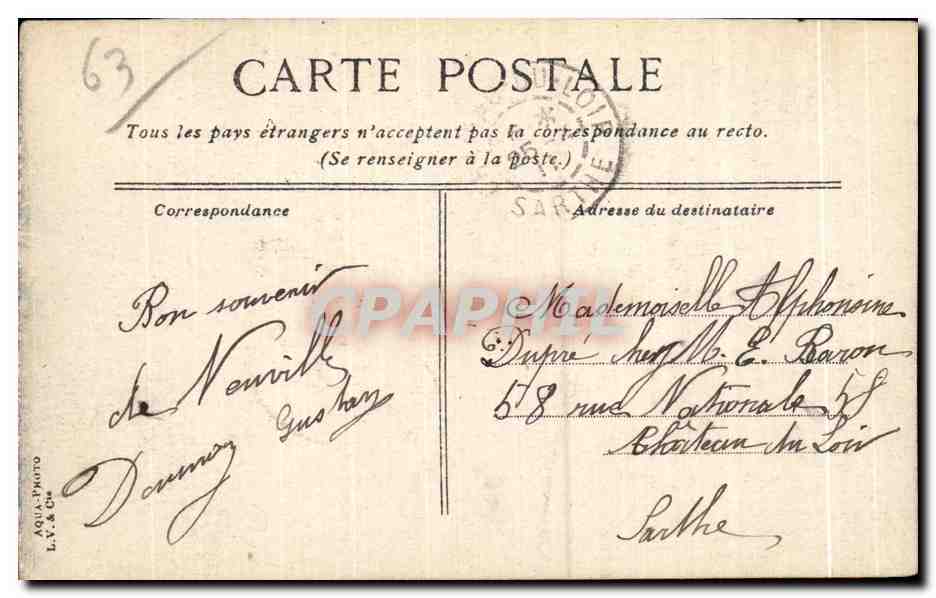 63
CARTE POSTALE
Tous les pays étrangers n'acceptent pas la correspondance au recto.
(Se renseigner à la poste.)
DU-LOIR
25
SARTHE
Correspondance
Adresse du destinataire
CPAPHIL
Bon souvenir
de Neuville
Gustave
Mademoiselle Alphonsine
Dupré chez M. E. Baron
58 rue Nationale 58
Château du Loir
Sarthe
AQUA-PHOTO
L.V. & Cie